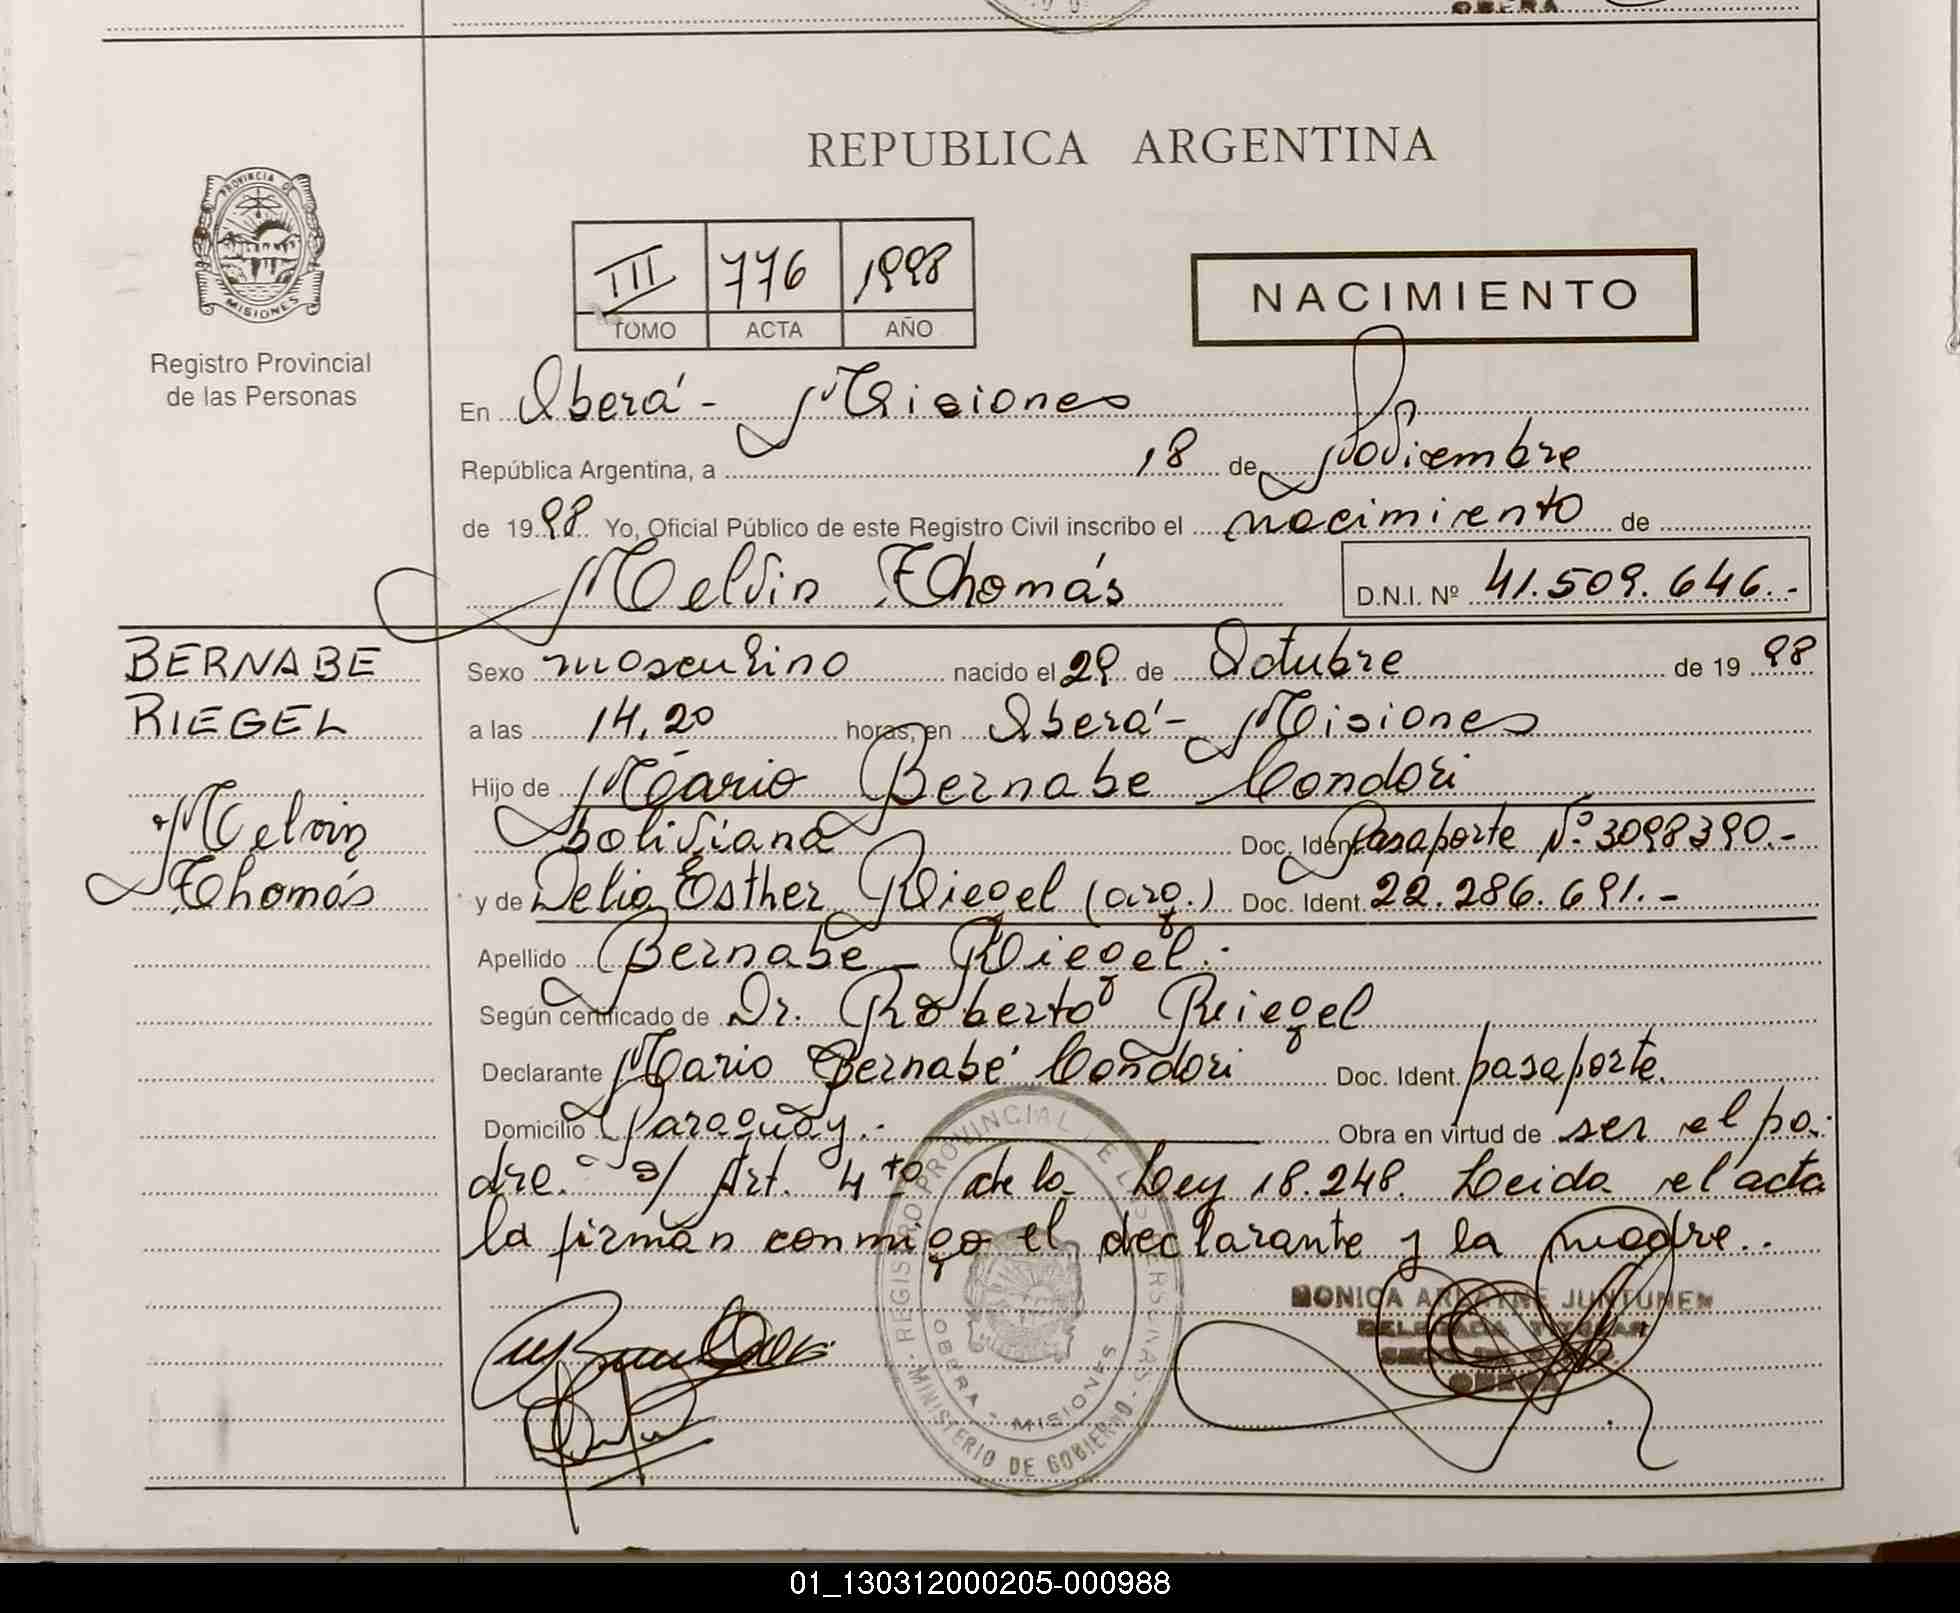 OBERA
REPUBLICA ARGENTINA
PROVINCIA DE
MISIONES
Registro Provincial
de las Personas
III 776 1998
TOMO ACTA AÑO
NACIMIENTO
En Oberá - Misiones
República Argentina, a 18 de Noviembre
de 1998 Yo, Oficial Público de este Registro Civil inscribo el nacimiento de
Melvin Thomás D.N.I. Nº 41.509.646.-
BERNABE
RIEGEL
Melvin
Thomás
Sexo masculino nacido el 29 de Octubre de 19 98
a las 14.20 horas, en Oberá - Misiones
Hijo de Mario Bernabe Condori
boliviana Doc. Ident. Pasaporte Nº 3098390.-
y de Delia Esther Riegel (arg.) Doc. Ident. 22.286.691.-
Apellido Bernabe - Riegel.-
Según certificado de Dr. Roberto Riegel
Declarante Mario Bernabé Condori Doc. Ident. pasaporte.
Domicilio Paraguay.- Obra en virtud de ser el pa-
dre.- s/ Art. 4to de la Ley 18.248. Leida el acta
la firman conmigo el declarante y la madre..
REGISTRO PROVINCIAL DE LAS PERSONAS
OBERA - MISIONES
MINISTERIO DE GOBIERNO
MONICA JUNTUNEN
DELEGADA TITULAR
OBERA
01_130312000205-000988